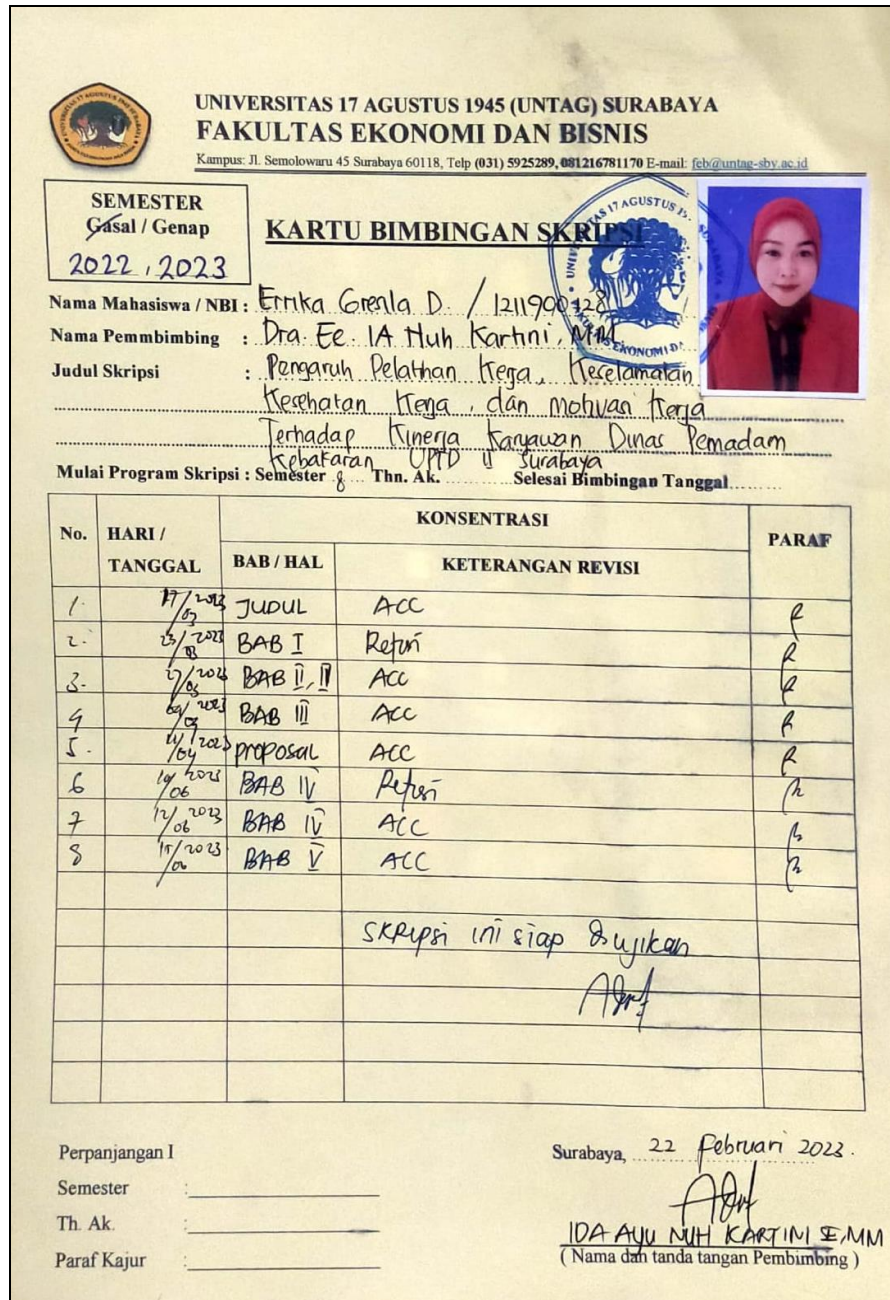 UNIVERSITAS 17 AGUSTUS 1945 (UNTAG) SURABAYA
FAKULTAS EKONOMI DAN BISNIS
Kampus: Jl. Semolowaru 45 Surabaya 60118, Telp (031) 5925289, 081216781170 E-mail: feb@untag-sby.ac.id
SEMESTER
Gasal / Genap
2022 , 2023
KARTU BIMBINGAN SKRIPSI
Nama Mahasiswa / NBI : Errika Grenla D. / 1211900128
Nama Pemmbimbing : Dra. Ec. IA Nuh Kartini, MM
Judul Skripsi : Pengaruh Pelatihan Kerja, Keselamatan
Kesehatan Kerja, dan Motivasi Kerja
Terhadap Kinerja Karyawan Dinas Pemadam
Kebakaran UPTD II Surabaya
Mulai Program Skripsi : Semester 8 Thn. Ak. Selesai Bimbingan Tanggal
No. HARI / TANGGAL KONSENTRASI PARAF
BAB / HAL KETERANGAN REVISI
1. /2023 JUDUL ACC
2. 23/2023 BAB I Refisi
3. BAB II, II ACC
4 BAB III ACC
5. /04 2023 proposal ACC
6 /06 2023 BAB IV Refisi
7 12/06 2023 BAB IV ACC
8 15/06 2023 BAB V ACC
Skripsi ini siap diujikan
Perpanjangan I
Semester :
Th. Ak. :
Paraf Kajur :
Surabaya, 22 februari 2023.
IDA AYU NUH KARTINI SE,MM
( Nama dan tanda tangan Pembimbing )